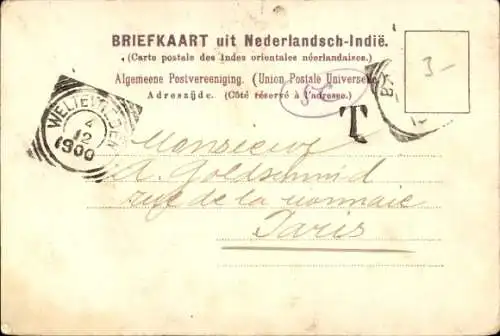 BRIEFKAART uit Nederlandsch-Indië.
(Carte postale des Indes orientales néerlandaises.)
Algemeene Postvereeniging. (Union Postale Universelle
Adreszijde. (Côté réservé à l'adresse.)
3-
T
WELTEVREDEN
4
12
1900
Monsieur
A. Goldschmid
rue de la monnaie
Paris